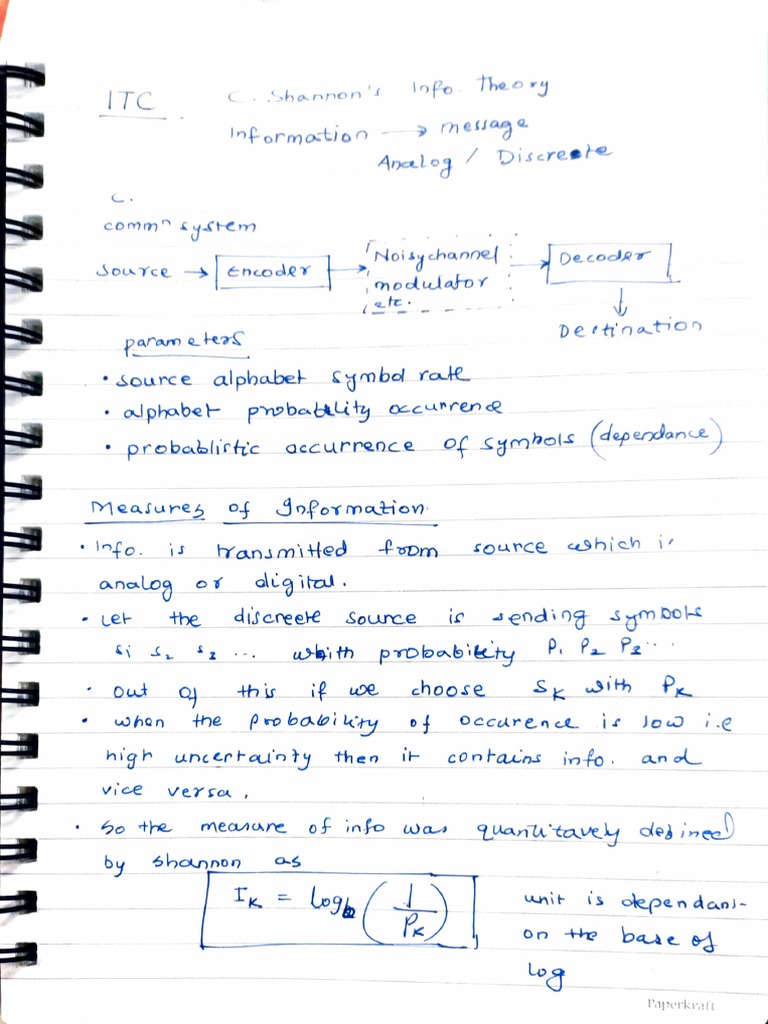 ITC C. Shannon's Info. Theory
Information → message
Analog / Discreete
C.
commⁿ system
source → Encoder → Noisy channel → Decoder
modulator
etc.
Destination
parameters
• source alphabet symbol rate
• alphabet probability occurrence
• probablistic occurrence of symbols (dependance)
Measures of Information.
• Info. is transmitted from source which is
analog or digital.
• Let the discreete source is sending symbols
Si S₂ S₃ ... with probability P₁ P₂ P₃ ...
• out of this if we choose Sₖ with Pₖ
• when the probability of occurence is low i.e
high uncertainty then it contains info. and
vice versa.
• So the measure of info was quantitavely defined
by shannon as
Iₖ = log_b (1/Pₖ) unit is dependant
on the base of
log
Paperkraft